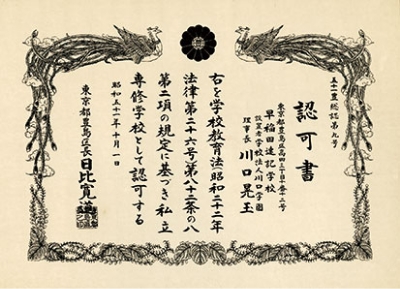 五十一豊総認第九号
認可書
東京都豊島区高田三丁目十一番十二号
早稲田速記学校
設置者学校法人川口学園
理事長 川口晃玉
右を学校教育法(昭和二十二年
法律第二十六号)第八十二条の八
第二項の規定に基づき私立
専修学校として認可する
昭和五十一年十月一日
東京都豊島区長 日比寛道